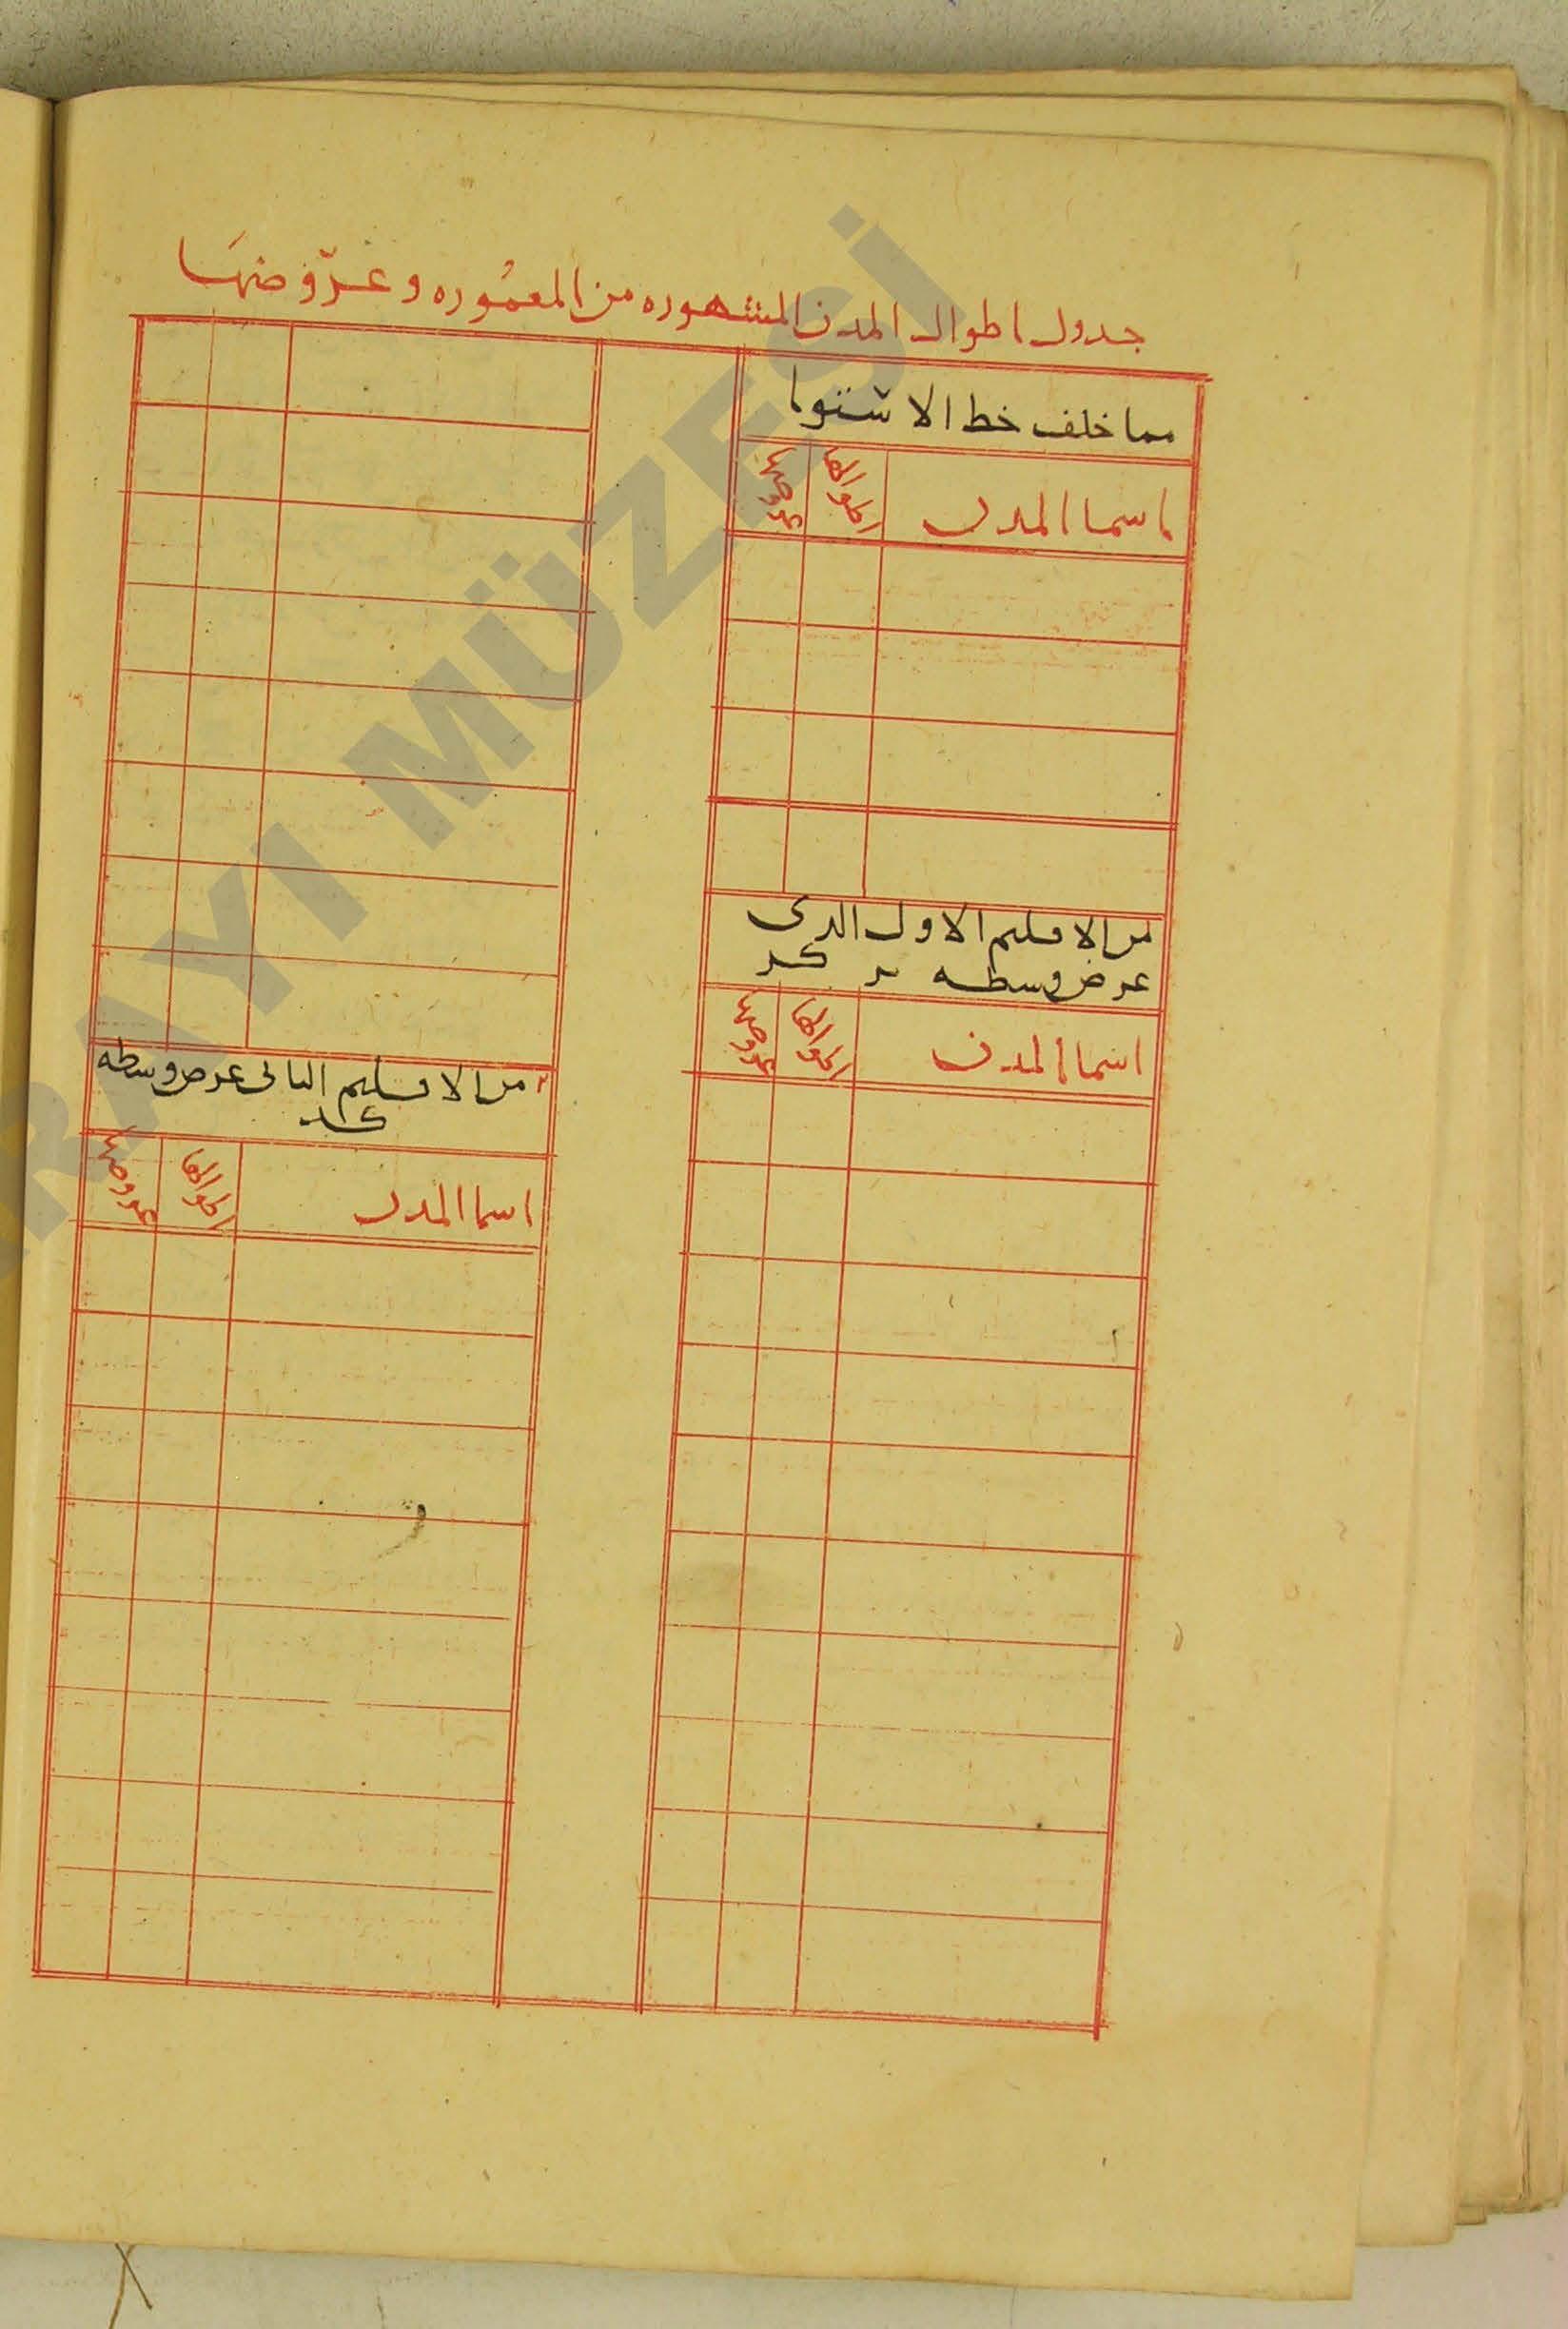 جدول اطوال المدن المشهوره من المعموره وعروضها
مما خلف خط الاستوا
اسما المدن
اطوالها
عروضها
من الاقليم الاول الدى
عرض وسطه ىر كر
اسما المدن
اطوالها
عروضها
من الاقليم الثانى عرض وسطه
كد
اسما المدن
اطوالها
عروضها
RAYI MÜZESİ